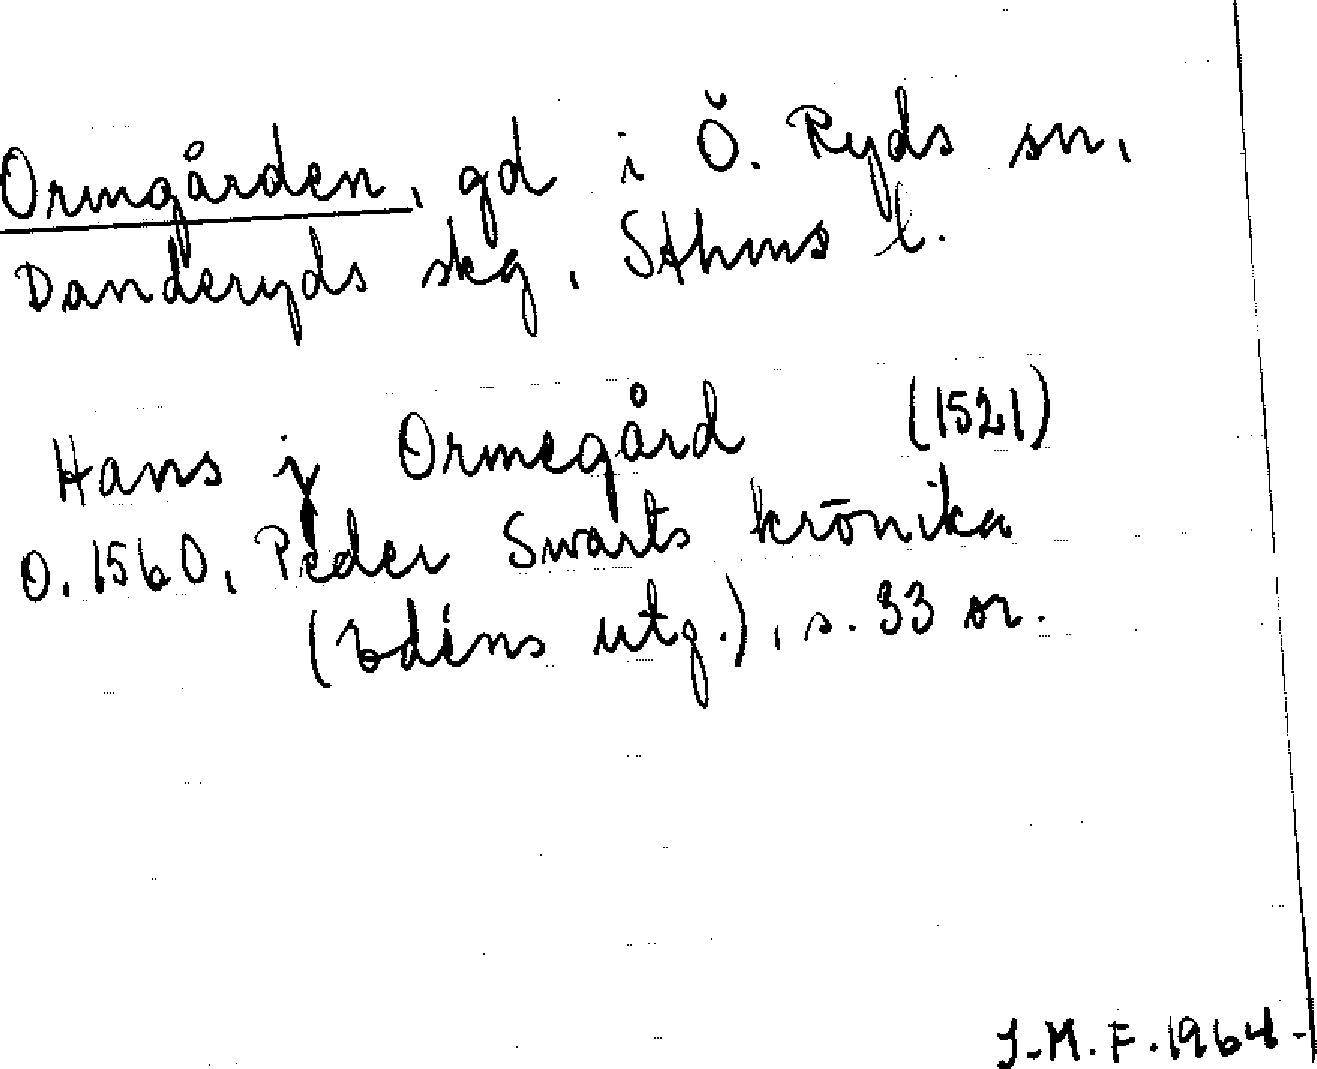 Ormgården, gd i Ö. Ryds sn,
Danderyds skg, Sthms l.
Hans ÿ Ormegård (1521)
O. 1560, Peder Swarts krönika
(Edéns utg.), s. 33 sr.
J-M.F.1964-